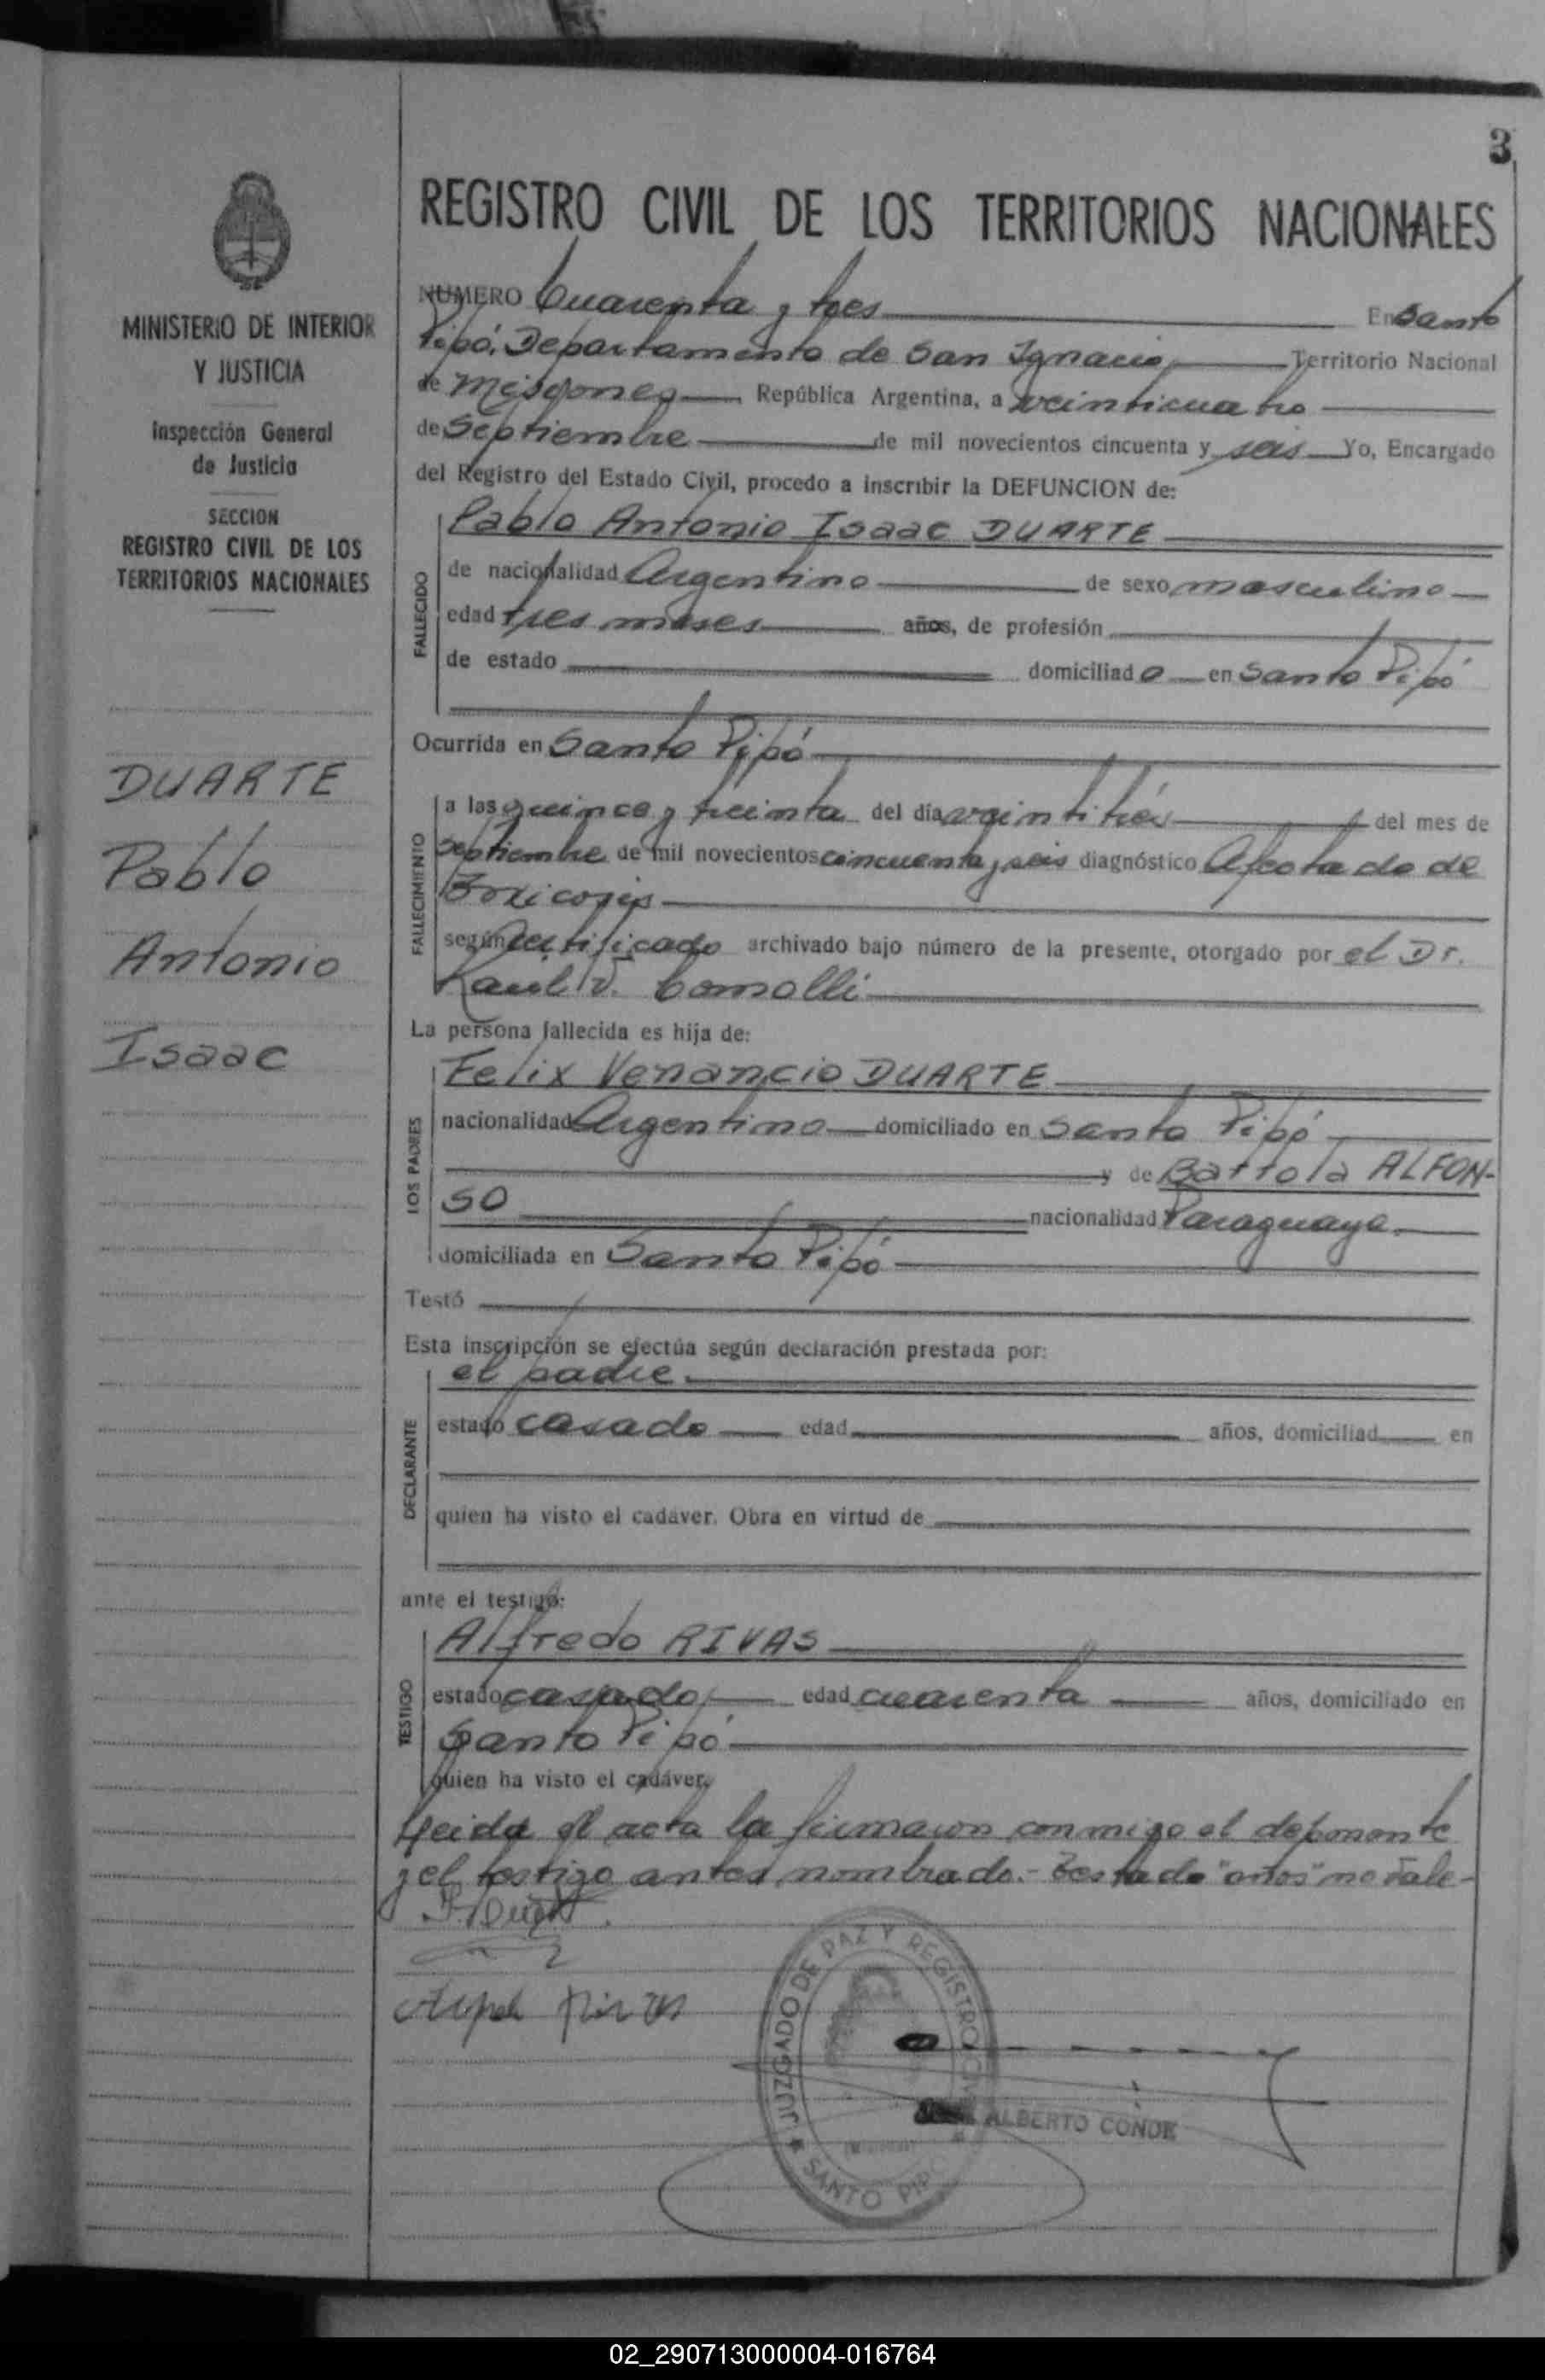 3
MINISTERIO DE INTERIOR
Y JUSTICIA
Inspección General
de Justicia
SECCION
REGISTRO CIVIL DE LOS
TERRITORIOS NACIONALES
DUARTE
Pablo
Antonio
Isaac
REGISTRO CIVIL DE LOS TERRITORIOS NACIONALES
NUMERO Cuarenta y tres En Santo
Pipó, Departamento de San Ignacio, Territorio Nacional
de Misiones República Argentina, a veinticuatro
de Septiembre de mil novecientos cincuenta y seis Yo, Encargado
del Registro del Estado Civil, procedo a inscribir la DEFUNCION de:
FALLECIDO
Pablo Antonio Isaac DUARTE
de nacionalidad Argentino de sexo masculino
edad tres meses años, de profesión
de estado domiciliado en Santo Pipó
Ocurrida en Santo Pipó
FALLECIMIENTO
a las quince y treinta del día veintitrés del mes de
Septiembre de mil novecientos cincuenta y seis diagnóstico Afectado de
Toxicosis
según Certificado archivado bajo número de la presente, otorgado por el Dr.
Raul V. Comolli
La persona fallecida es hija de:
LOS PADRES
Felix Venancio DUARTE
nacionalidad Argentino domiciliado en Santo Pipó
y de Bartola ALFON-
SO nacionalidad Paraguaya
domiciliada en Santo Pipó
Testó
Esta inscripción se efectúa según declaración prestada por:
DECLARANTE
el padre.
estado casado edad años, domiciliad en
quien ha visto el cadáver. Obra en virtud de
ante el testigo:
TESTIGO
Alfredo RIVAS
estado casado edad cuarenta años, domiciliado en
Santo Pipó
quien ha visto el cadáver,
Leida el acta la firmaron conmigo el deponente
y el testigo antes nombrado.- Testado "años" no vale-
JUZGADO DE PAZ Y REGISTRO CIVIL
SANTO PIPO
ALBERTO CONDE
02_290713000004-016764